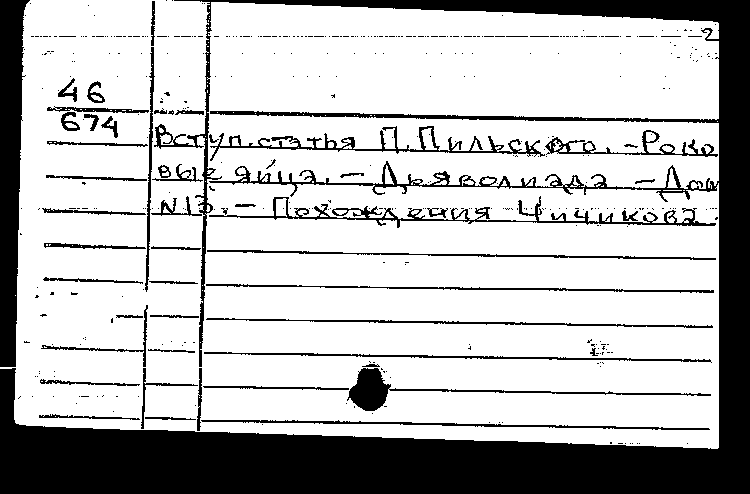 2
46
674
Вступ.статья П.Пильского. -Роко
вые яйца. - Дьяволиада - Дом
N13. - Похождения Чичикова.